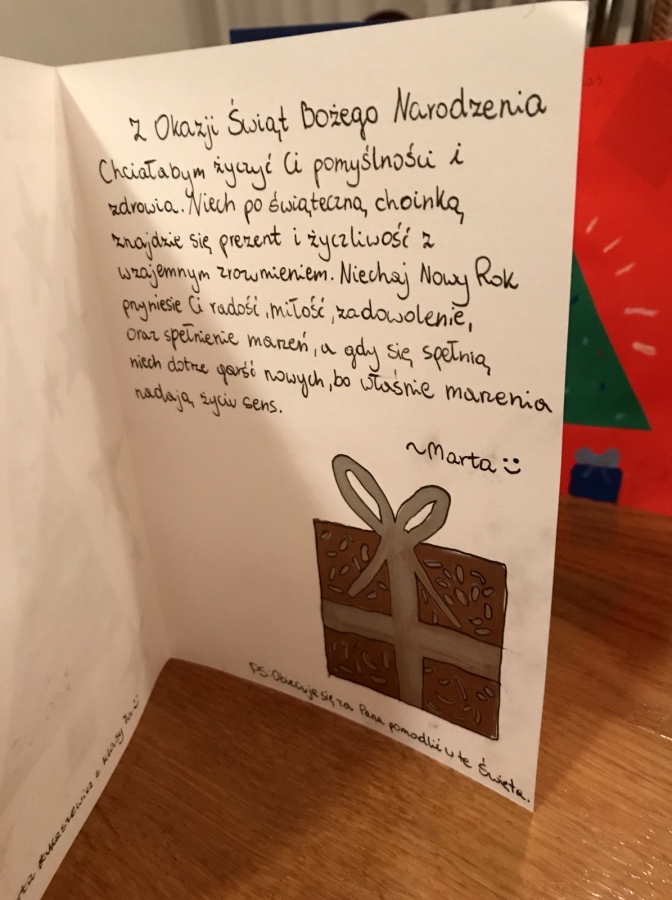 Z Okazji Świąt Bożego Narodzenia
Chciałabym życzyć Ci pomyślności i
zdrowia. Niech po świąteczną choinką
znajdzie się prezent i życzliwość z
wzajemnym zrozumieniem. Niechaj Nowy Rok
przyniesie Ci radość, miłość, zadowolenie,
oraz spełnienie marzeń, a gdy się spełnią
niech dotrze garść nowych, bo właśnie marzenia
nadają życiu sens.
~Marta
PS: Obiecuje się za Pana pomodlić w te Święta.
z klasy